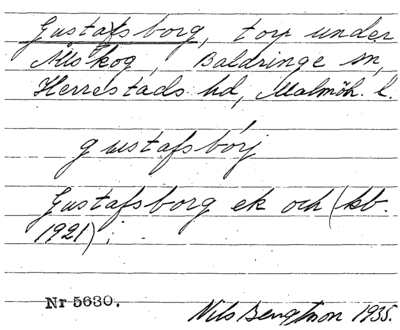 Gustafsborg, torp under
Allskog, Baldringe sn,
Herrestads hd, Malmöh. l.
gustafsbórj
Gustafsborg ek och (kb.
1921).
Nr 5630.
Nils Bengtson 1935.